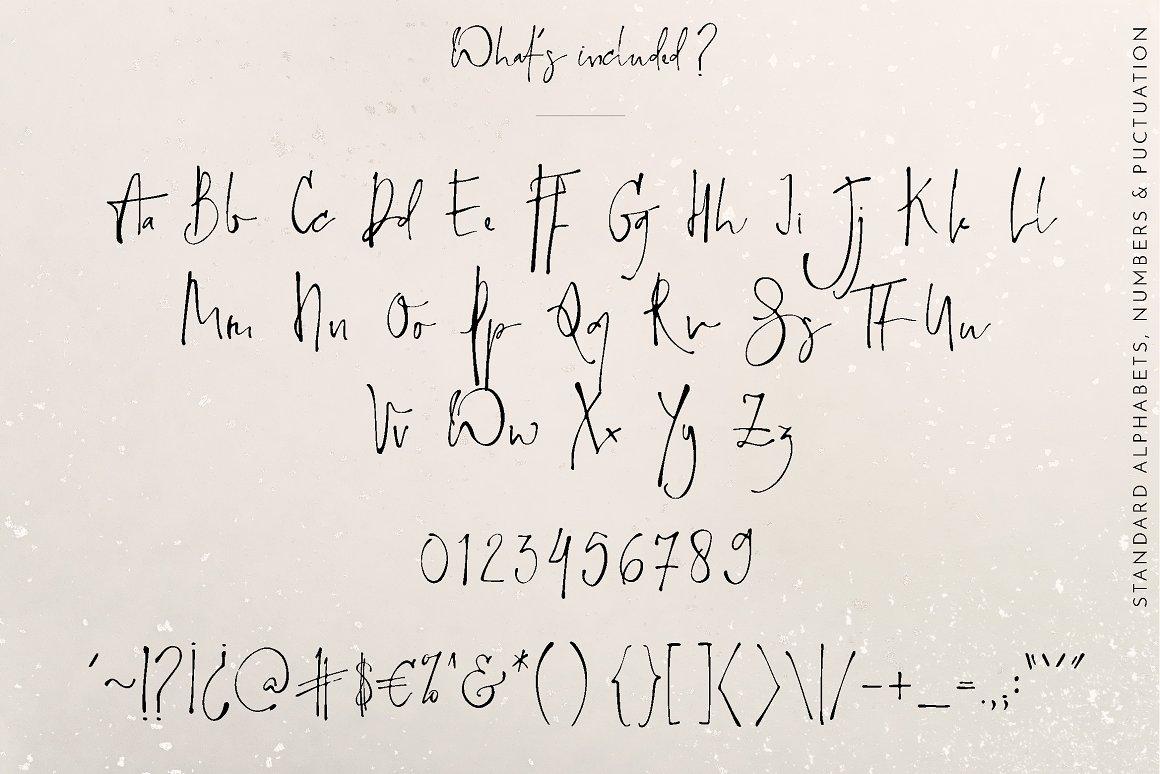 What's included?
Aa Bb Cc Dd Ee Ff Gg Hh Ii Jj Kk Ll
Mm Nn Oo Pp Qq Rr Ss Tt Uu
Vv Ww Xx Yy Zz
0123456789
´~!?¡¿@#$€%^&*(){}[]<>\|/-+_=.,;:"''"
STANDARD ALPHABETS, NUMBERS & PUCTUATION